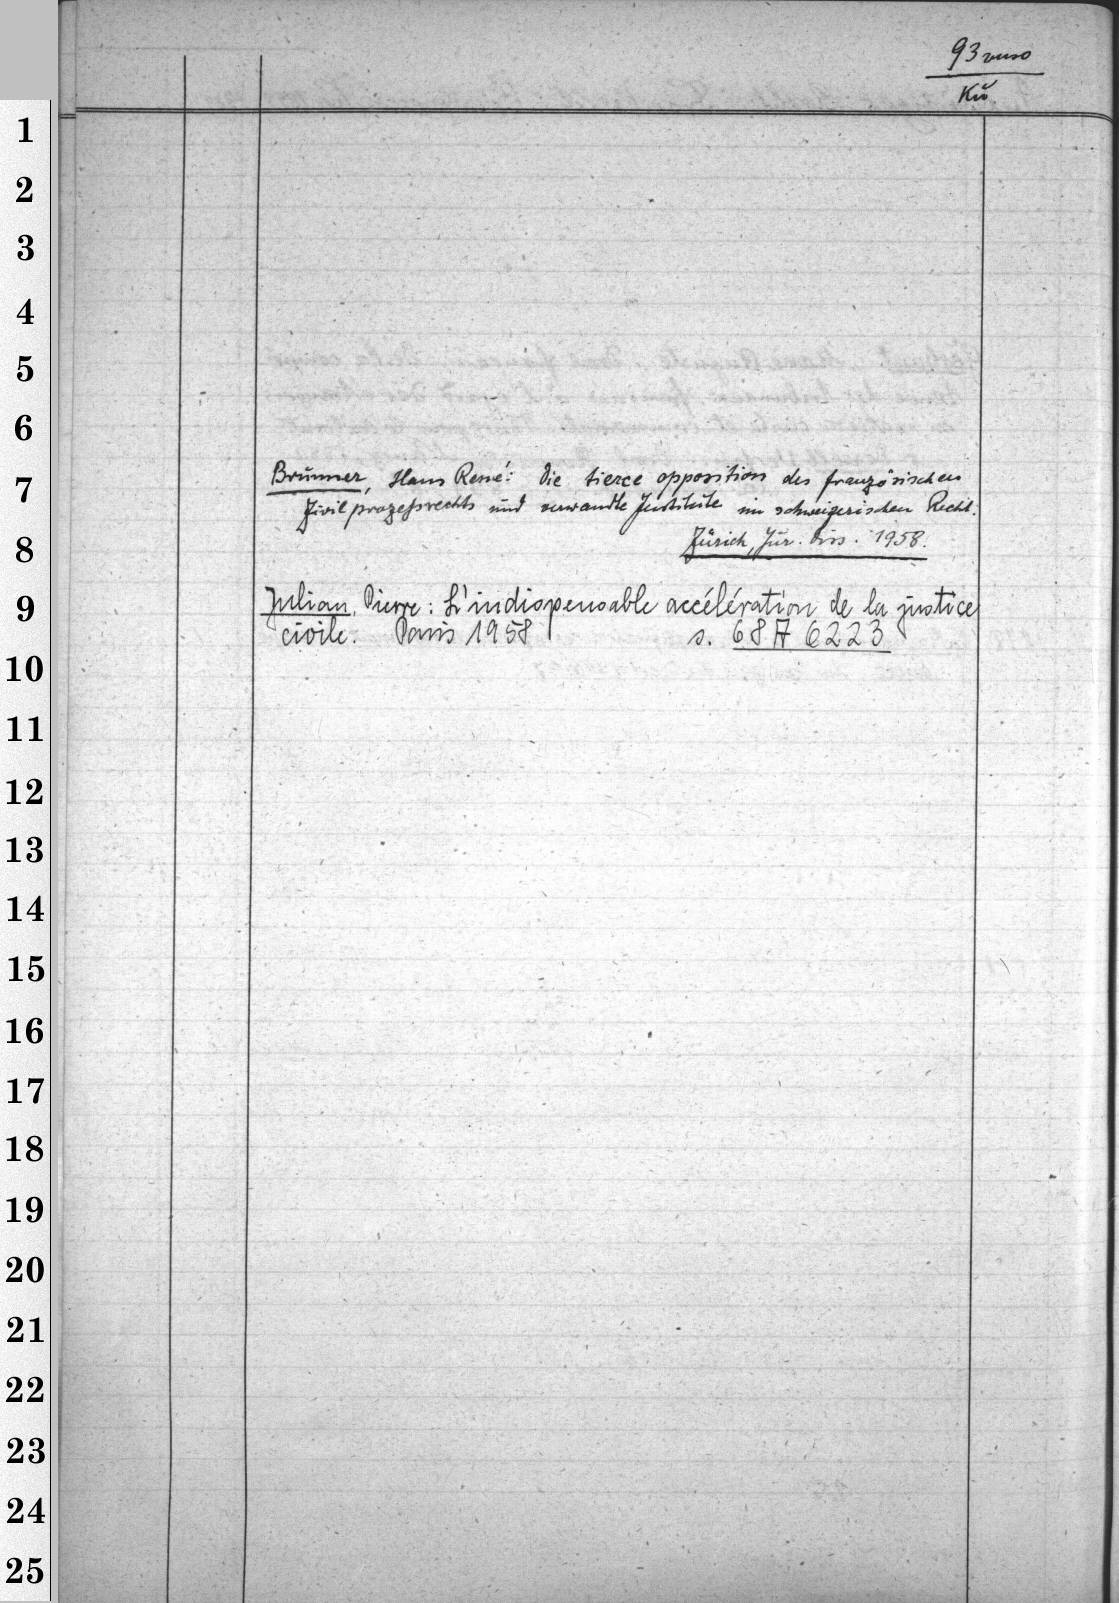 93 verso
Kü
1
2
3
4
5
6
Brunner, Hans René: Die tierce opposition des französischen
7
Zivilprozeßrechts und verwandte Institute im schweigerischen Recht.
8
Zürich, Jur. Diss. 1958.
9
Julian, Pierre: L'indispensable accélération de la justice
civile. Paris 1958 s. 68 A 6223
10
11
12
13
14
15
16
17
18
19
20
21
22
23
24
25